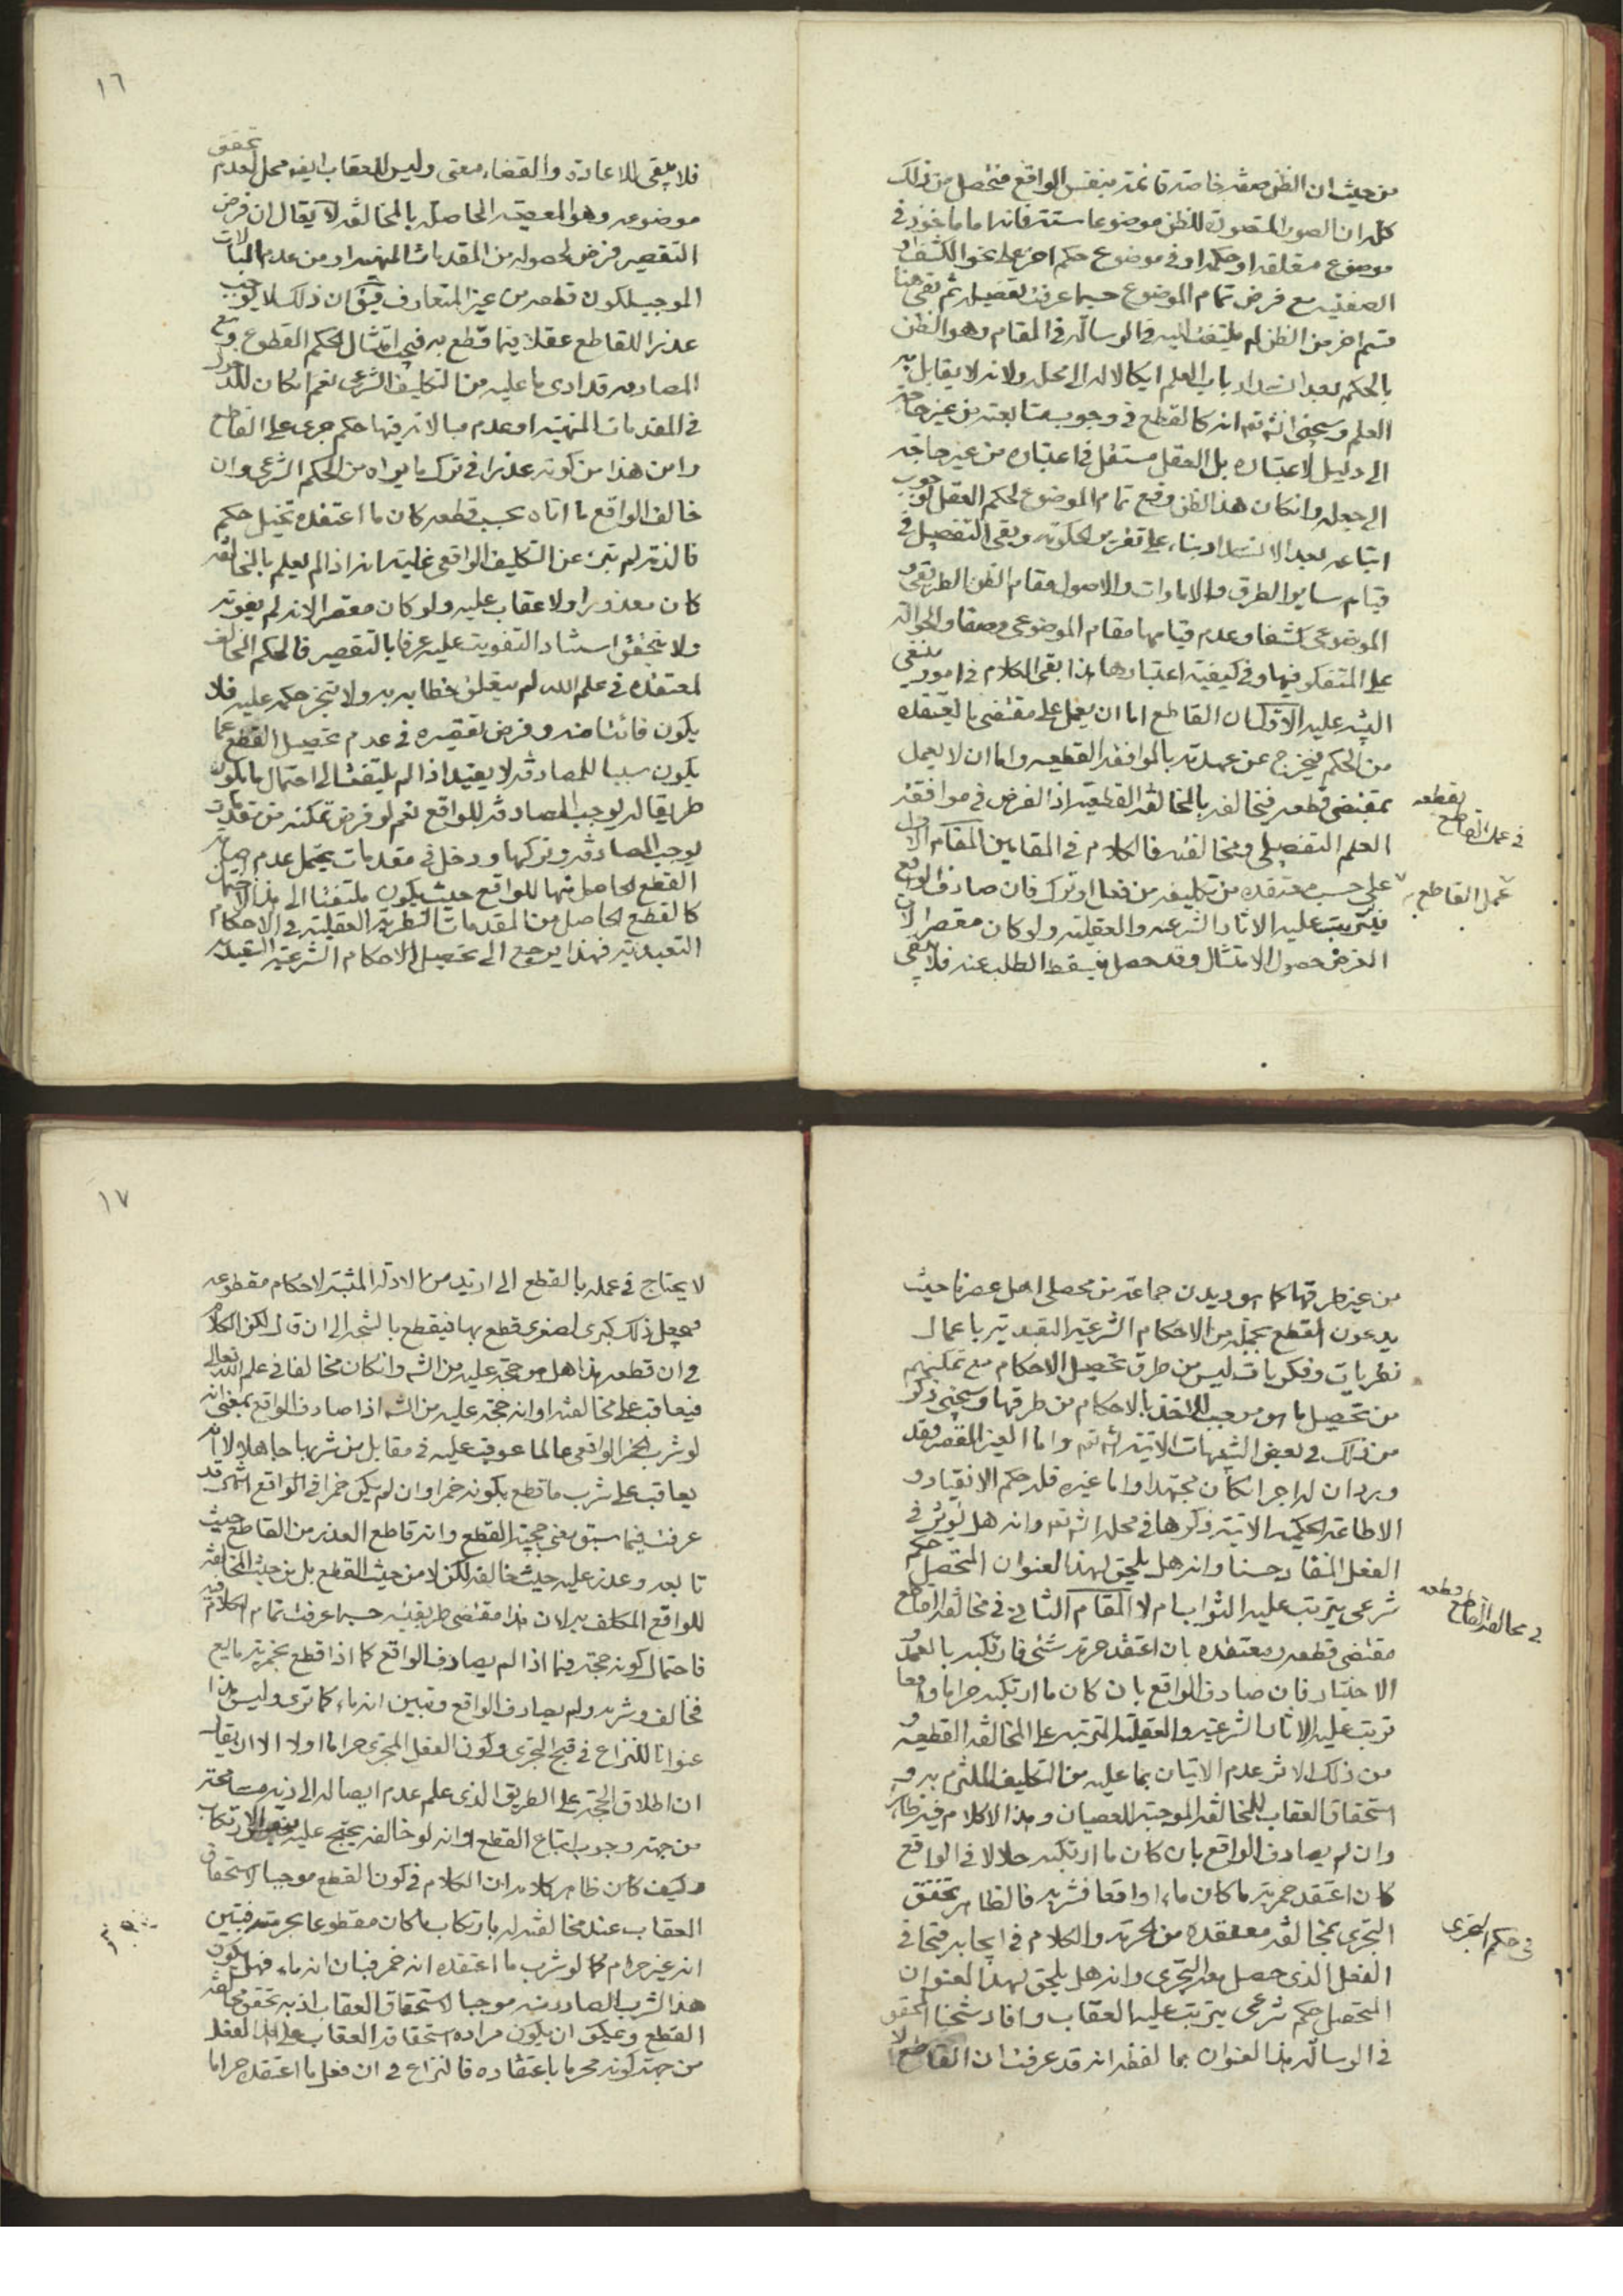 من حيث ان الظن صفة خاصة قائمة بنفس الواقع فتحصل من ذلك
كله ان الصور المتصورة للظن موضوعا ستة فانه اما ماخوذ في
موضوع متعلقه او حكمه او في موضوع حكم اخر على نحو الكشف او
الصفتية مع فرض تمام الموضوع حسبما عرفت تفصيله ثم بقى هنا
قسم اخر من الظن لم يلتفت اليه في الرسالة في المقام وهو الظن
بالحكم بعد انسداد باب العلم ايكالا له الى محله ولانه لا يقابل به
العلم وسيجئ انشه تع انه كالقطع في وجوب متابعته من غير حاجة
الى دليل لاعتباره بل العقل مستقل في اعتباره من غير حاجة
الى جعله وان كان هذا الظن وقع تمام الموضوع لحكم العقل لوجوب
اتباعه بعد الانسداد بناء على تقرير الحكومة وبقى التفصيل في
قيام ساير الطرق والامارات والاصول مقام الظن الطريقى و
الموضوعى كشفا وعدم قيامها مقام الموضوعى وصفا والحوالة
على المتفكر فيها وفي كيفية اعتبارها هذا بقى الكلام في امور ينبغى
التنبيه عليه الاول ان القاطع اما ان يعمل على مقتضى ما يعتقده
من الحكم فيخرج عن عهدته بالموافقة القطعية واما ان لا يعمل
بمقتضى قطعه فيخالفه بالمخالفة القطعية اذا الفرض في موافقة
العلم التفصيلى ومخالفته فالكلام في المقامين المقام الاول
في عمل القاطع بقطعه
على حسب معتقده من تكليفه من فعل او ترك فان صادف الواقع
عمل القاطع
فيترتب عليه الاثار الشرعية والعقلية ولو كان مقصرا لان
الغرض حصول الامتثال وقد حصل فيسقط الطلب عنه فلا يبقى
١٦
فلا يبقى للاعادة والقضاء معنى وليس للعقاب ايضه محل لعدم تحقق
موضوعه وهو المعصية الحاصلة بالمخالفة لا يقال ان فرض
التقصير فرض لحصوله من المقدمات المنهية او من عدم المبالات
الموجب لكون قطعه من غير المتعارف فيق ان ذلك لا يوجب
عذرا للقاطع عقلا فيما قطع به في امتثال الحكم المقطوع ومع
المصادفة قد ادى ما عليه من التكليف الشرعى نعم ان كان للدخول
في المقدمات المنهية او عدم مبالاته فيها حكم جرى على القاطع
واين هذا من كونه عذرا في ترك ما يراه من الحكم الشرعى وان
خالف الواقع ما اتاه بحسب قطعه كان ما اعتقده تخيل حكم
فالذمة لم تبرء عن التكليف الواقعى غايته انه اذا لم يعلم بالمخالفة
كان معذورا ولا عقاب عليه ولو كان مقصرا لانه لم يفوته
ولا يتحقق استناد التفويت عليه عرفا بالتقصير فالحكم المخالف
لمعتقده في علم الله لم يتعلق خطابه به ولا تنجز حكمه عليه فلا
يكون فائتا منه وفرض تقصيره في عدم تحصيل القطع عما
يكون سببا للمصادفة لا يفيد اذا لم يلتفت الى احتمال ما يكون
طريقا له يوجب المصادفة للواقع نعم لو فرض تمكنه من مقدمات
يوجب المصادفة وتركها ودخل في مقدمات يحتمل عدم اصابة
القطع الحاصل منها للواقع حيث يكون ملتفتا الى هذا الاحتمال
كالقطع الحاصل من المقدمات النظرية العقلية في الاحكام
التعبدية فهذا يرجع الى تحصيل الاحكام الشرعية التعبدية
من غير طرقها كما هو ديدن جماعة من محصلى اهل عصرنا حيث
يدعون القطع بجملة من الاحكام الشرعية التعبدية باعمال
نظريات وفكريات ليس من طرق تحصيل الاحكام مع تمكينهم
من تحصيل ما هو موجب للاخذ بالاحكام من طرقها وسيجئ ذكر
من ذلك في بعض التنبيهات الاتية انشه تع واما الغير المقصر فقد
ورد ان له اجر ان كان مجتهدا واما غيره فله حكم الانقياد و
الاطاعة الحكمية الاتية ذكرها في محله انشه تع وانه هل يؤثر في
الفعل المنقاد حسنا وانه هل يلحق لهذا العنوان المتحصل حكم
شرعى يترتب عليه الثواب ام لا المقام الثانى في مخالفة القاطع
في مخالفة القاطع قطعه
مقتضى قطعه ومعتقده بان اعتقد حرمة شئ فارتكبه بالعمد و
الاختيار فان صادف الواقع بان كان ما ارتكبه حراما واقعا
ترتب عليه الاثار الشرعية والعقلية المترتبة على المخالفة القطعية و
من ذلك الاثر عدم الاتيان بما عليه من التكليف الملتزم به و
استحقاق العقاب للمخالفة الموجبة للعصيان وهذا الكلام فيه ظاهر
وان لم يصادف الواقع بان كان ما ارتكبه حلالا في الواقع
كان اعتقد خمرية ما كان ماء واقعا فشربه فالظاهر تحقق
في حكم التجرى
التجرى بمخالفة معتقده من الحرمة والكلام في ايجابه قبحا في
الفعل الذى حصل به التجرى وانه هل يلحق لهذا العنوان
المتحصل حكم شرعى يترتب عليه العقاب وافاد شيخنا المحقق
في الرسالة هذا العنوان بما لفظه انه قد عرفت ان القاطع لا
١٧
لا يحتاج في عمله بالقطع الى ازيد من الادلة المثبتة لاحكام مقطوعه
فيجعل ذلك كبرى لصغرى قطع بها فيقطع بالنتيجة الى ان قال لكن الكلام
في ان قطعه هذا هل هو حجة عليه من الشه وان كان مخالفا في علم الله تعالى
فيعاقب على مخالفته او انه حجة عليه من الشه اذا صادف الواقع بمعنى انه
لو شرب الخمر الواقعى عالما عوقب عليه في مقابل من شربها جاهلا لا انه
يعاقب على شرب ما قطع بكونه خمرا وان لم يكن خمرا في الواقع انتهى قد
عرفت فيما سبق معنى حجية القطع وانه قاطع العذر من القاطع حيث
تابعه وعذر عليه حيث خالفه لكن لا من حيث القطع بل من حيث المخالفة
للواقع المكلف به لان هذا مقتضى طريقيته حسبما عرفت تمام الكلام فيه
فاحتمال كونه حجة فيما اذا لم يصادف الواقع كما اذا قطع بخمرية مايع
فخالف وشربه ولم يصادف الواقع وتبين انه ماء كما ترى وليس هذا
عنوانا للنزاع في قبح التجرى وكون الفعل المتجرى حراما اولا الا ان يقال
ان اطلاق الحجة على الطريق الذى علم عدم ايصاله الى ذيه مسامحة
من جهة وجوب اتباع القطع وانه لو خالفه يحتج عليه الارتكاب
وكيف كان ظاهر كلامه ان الكلام في كون القطع موجبا لاستحقاق
العقاب عند مخالفته له بارتكاب ما كان مقطوعا بحرمته فتبين
انه غير حرام كما لو شرب ما اعتقده انه خمر فبان انه ماء فهل يكون
هذا الشرب الصادر منه موجبا لاستحقاق العقاب اذ به تحقق مخالفة
القطع ويمكن ان يكون مراده استحقاقه العقاب على هذا الفعل
من جهة كونه محرما باعتقاده فالنزاع في ان فعل ما اعتقده حراما